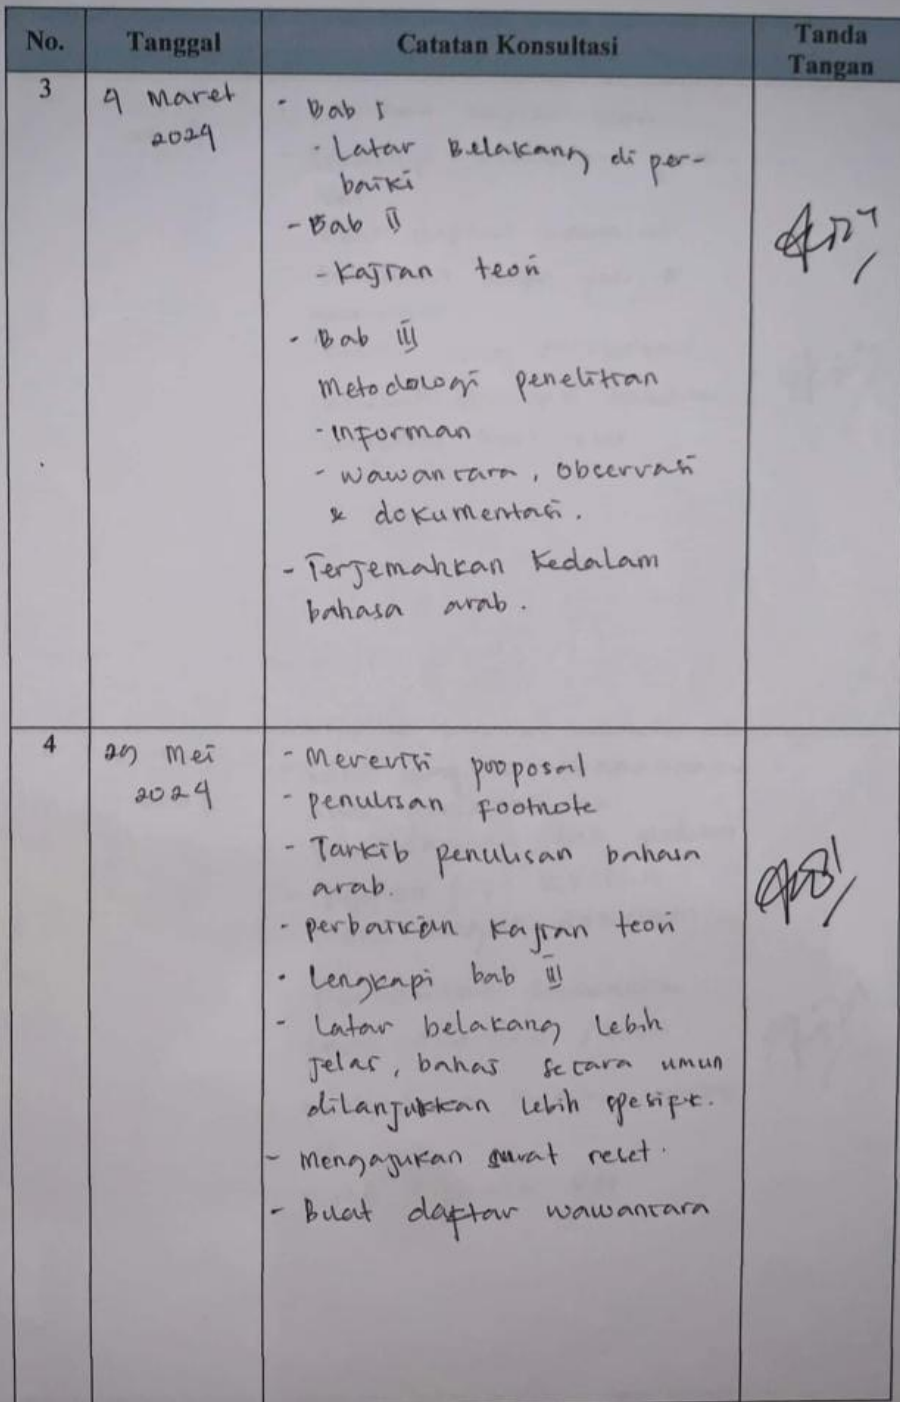 No. Tanggal Catatan Konsultasi Tanda Tangan
3
9 Maret
2024
- Bab I
- Latar Belakang di per-
baiki
- Bab II
- Kajian teori
- Bab III
Metodologi penelitian
- Informan
- wawancara, Observasi
& dokumentasi.
- Terjemahkan Kedalam
bahasa arab.
4
29 Mei
2024
- Merevisi proposal
- penulisan footnote
- Tarkib penulisan bahasa
arab.
- perbaikan Kajian teori
- Lengkapi bab III
- Latar belakang Lebih
jelas, bahas secara umun
dilanjukkan Lebih spesifik.
- mengajukan surat reset.
- Buat daftar wawancara